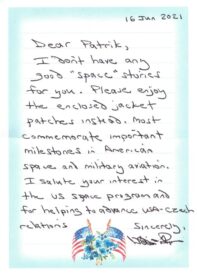 16 Jun 2021
Dear Patrik,
I don't have any
good "space" stories
for you. Please enjoy
the enclosed jacket
patches instead. Most
commemorate important
milestones in American
space and military aviation.
I salute your interest in
the US space program and
for helping to advance USA-Czech
relations
Sincerely,